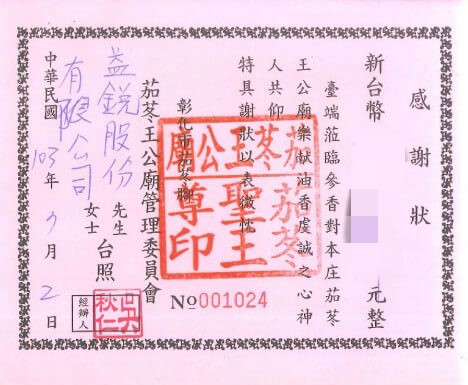 感謝狀
新台幣 元整
臺端蒞臨參香對本庄茄苳
王公廟樂献油香虔誠之心神
人共仰
特具謝狀以表微忱
彰化市茄苳腳
茄苳王公廟管理委員會
茄苳王公廟
茄苳
聖王
尊印
№001024
益銳股份
有限公司
先生
女士
台照
經辦人
吳秋仁
中華民國103年 月2日